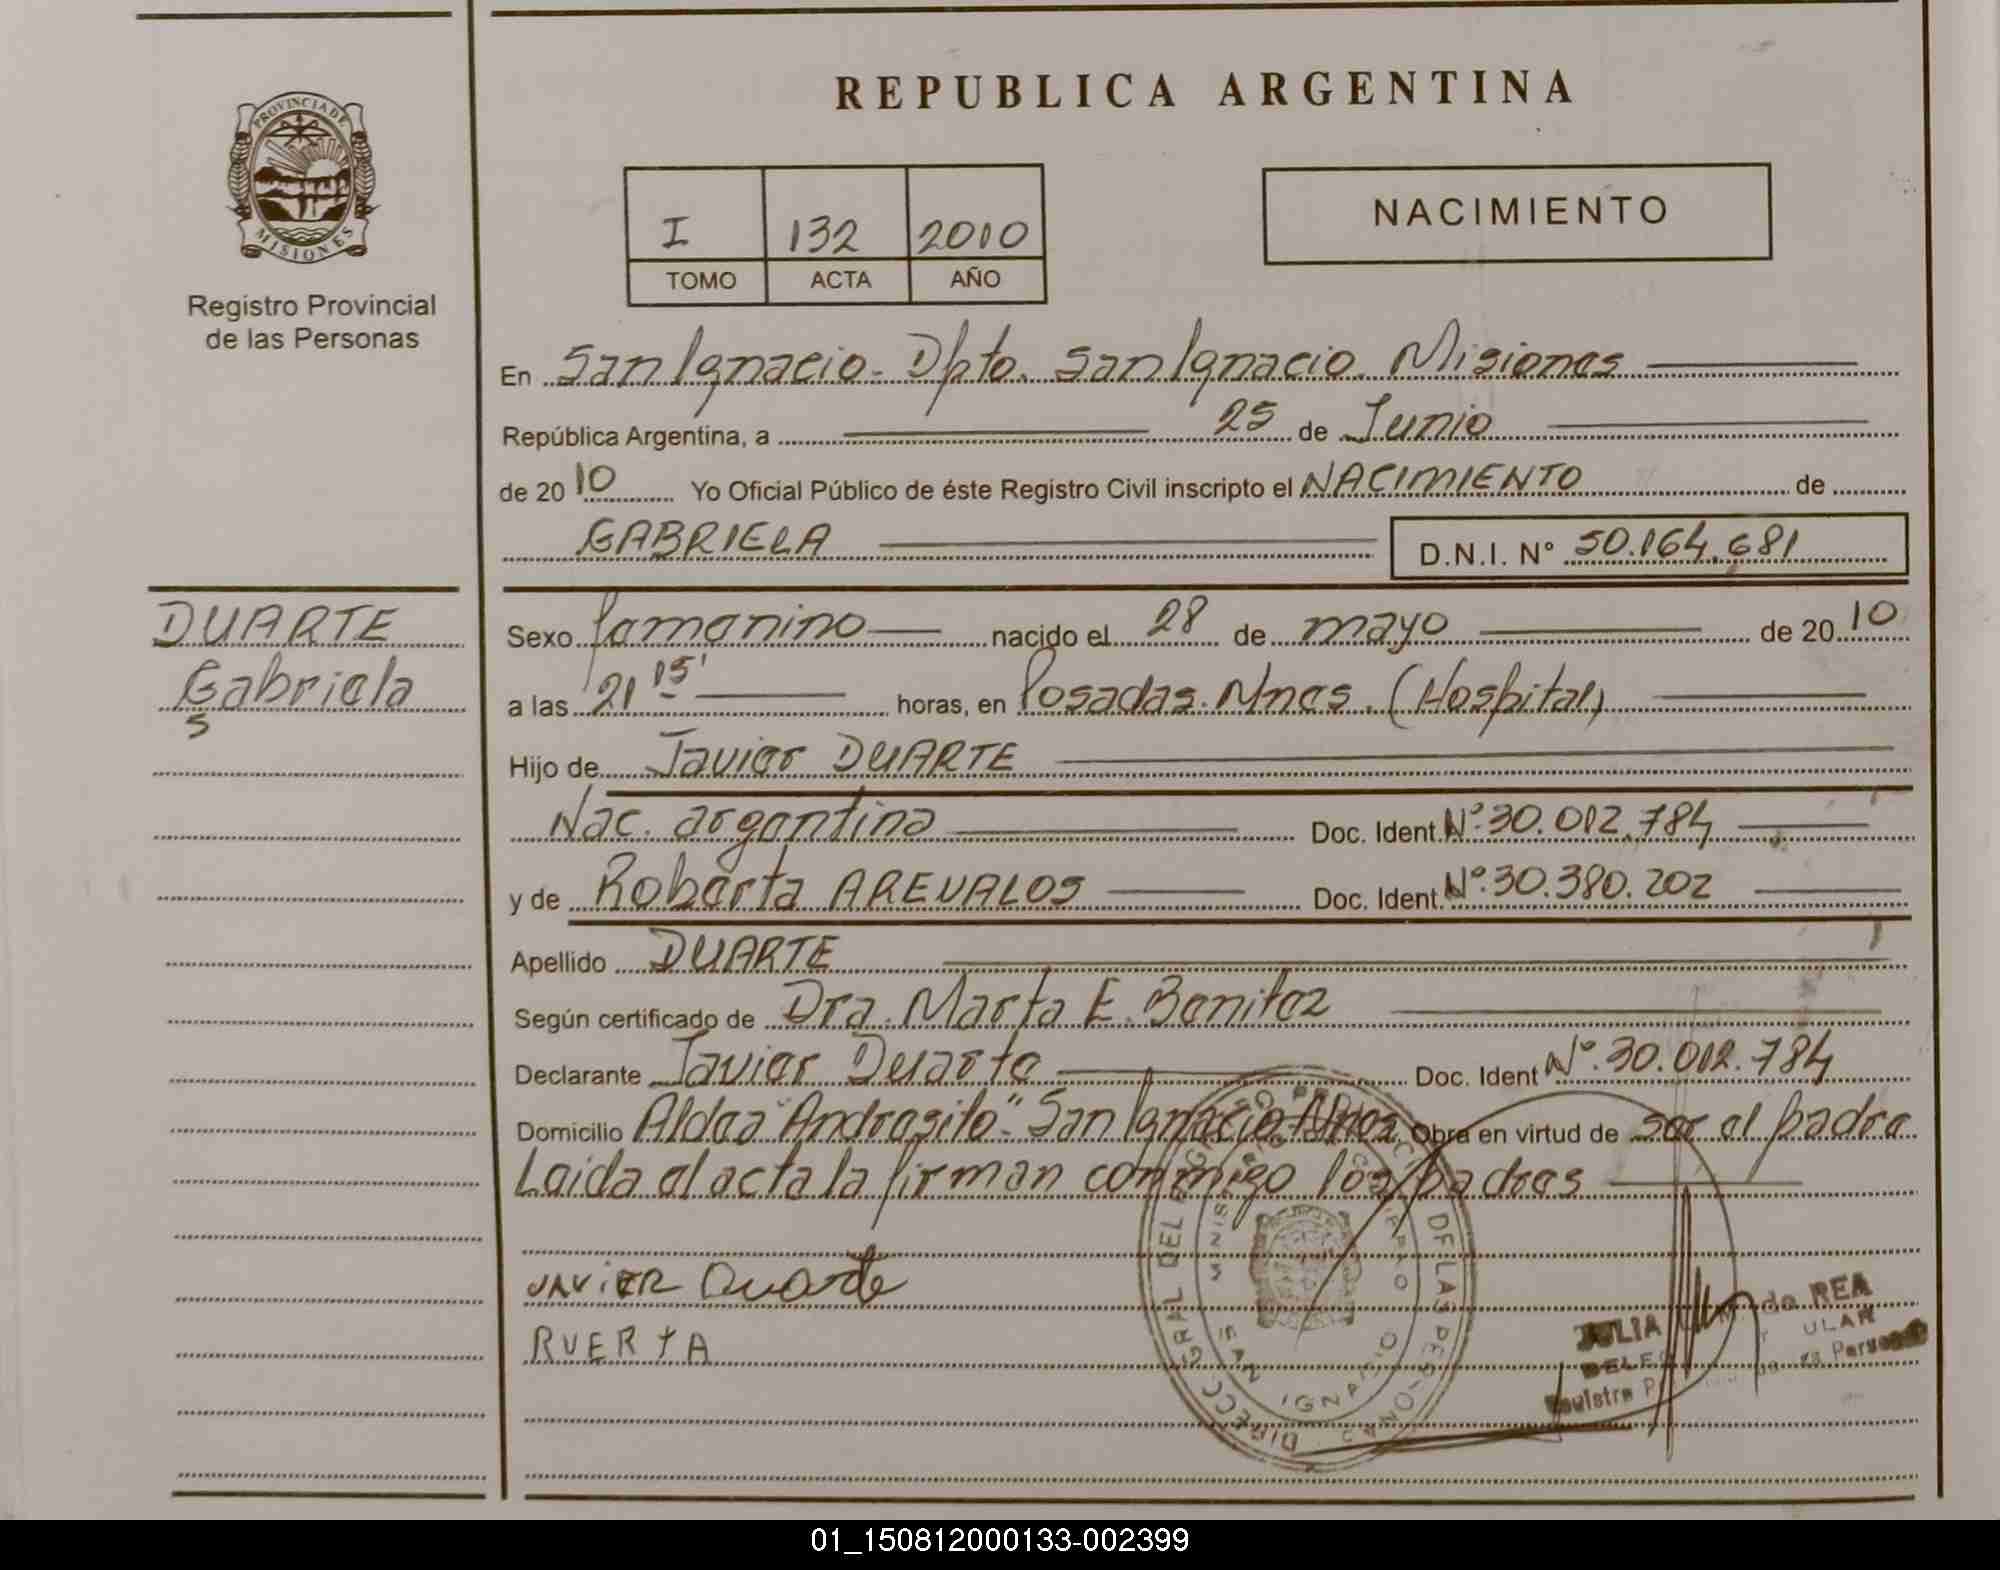 PROVINCIA DE
MISIONES
Registro Provincial
de las Personas
REPUBLICA ARGENTINA
I 132 2010
TOMO ACTA AÑO
NACIMIENTO
En San Ignacio. Dpto. San Ignacio. Misiones
República Argentina, a 25 de Junio
de 2010 Yo Oficial Público de éste Registro Civil inscripto el NACIMIENTO de
GABRIELA
D.N.I. N° 50.164.681
DUARTE
Gabriela
Sexo femenino nacido el 28 de mayo de 2010
a las 21 15' horas, en Posadas. Mnes. (Hospital)
Hijo de Javier DUARTE
Nac. argentina Doc. Ident. N°. 30.012.784
y de Roberta AREVALOS Doc. Ident. N°. 30.380.202
Apellido DUARTE
Según certificado de Dra. Marta E. Benitez
Declarante Javier Duarte Doc. Ident N°. 30.012.784
Domicilio Aldea "Andresito" San Ignacio. Mnes. Obra en virtud de ser el padre
Leida el acta la firman conmigo los padres
JAVIER Duarte
RUERTA
SAN IGNACIO
JULIA de REA
01_150812000133-002399